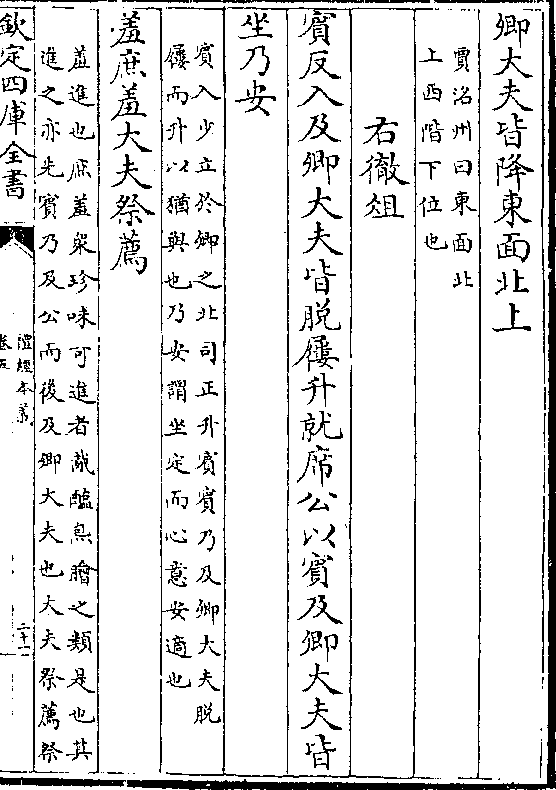 卿大夫皆降東面北上
賈洺州曰東面北
上西階下位也
右徹俎
賓反入及卿大夫皆脱屨升就席公以賓及卿大夫皆
坐乃安
賓入少立於卿之北司正升賓賓乃及卿大夫脱
屨而升以猶與也乃安謂坐定而心意安適也
羞庶羞大夫祭薦
羞進也庶羞衆珍味可進者胾醢魚膾之類是也其
進之亦先賓乃及公而後及卿大夫也大夫祭薦祭
欽定四庫全書
禮經本義
卷五
二十一